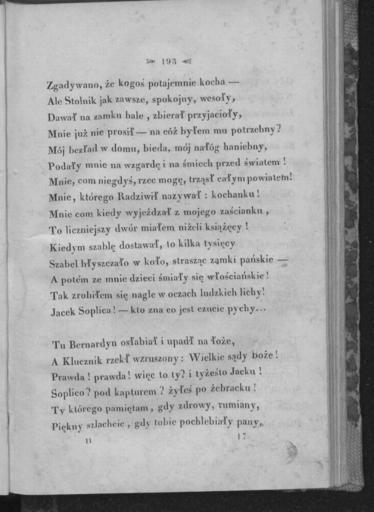 193
Zgadywano, że kogoś potajemnie kocha —
Ale Stolnik jak zawsze, spokojny, wesoły,
Dawał na zamku bale, zbierał przyjacioły,
Mnie już nie prosił — na cóż byłem mu potrzebny?
Mój bezład w domu, bieda, mój nałóg haniebny,
Podały mnie na wzgardę i na śmiech przed światem!
Mnie, com niegdyś, rzec mogę, trząsł całym powiatem!
Mnie, którego Radziwił nazywał: kochanku!
Mnie com kiedy wyjeżdzał z mojego zaścianku,
To liczniejszy dwór miałem niżeli książęcy!
Kiedym szablę dostawał, to kilka tysięcy
Szabel błyszczało w koło, strasząc zamki pańskie —
A potém ze mnie dzieci śmiały się włościańskie!
Tak zrobiłem się nagle w oczach ludzkich lichy!
Jacek Soplica! — kto zna co jest czucie pychy...
Tu Bernardyn osłabiał i upadł na łoże,
A Klucznik rzekł wzruszony: Wielkie sądy boże!
Prawda! prawda! więc to ty? i tyżeśto Jacku!
Soplico? pod kapturem? żyłeś po żebracku!
Ty którego pamiętam, gdy zdrowy, rumiany,
Piękny szlachcic, gdy tobie pochlebiały pany,
II 17.